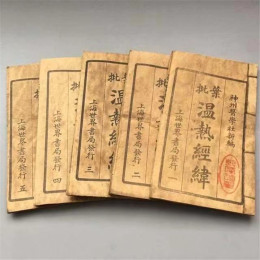 神州醫學社新編
葉批
溫熱經緯
上海世界書局發行 一
批
溫熱經
上海世界書局發行 二
批
溫熱經
上海世界書局發行 三
批
上海世界書局發行 四
批
上海世界書局發行 五